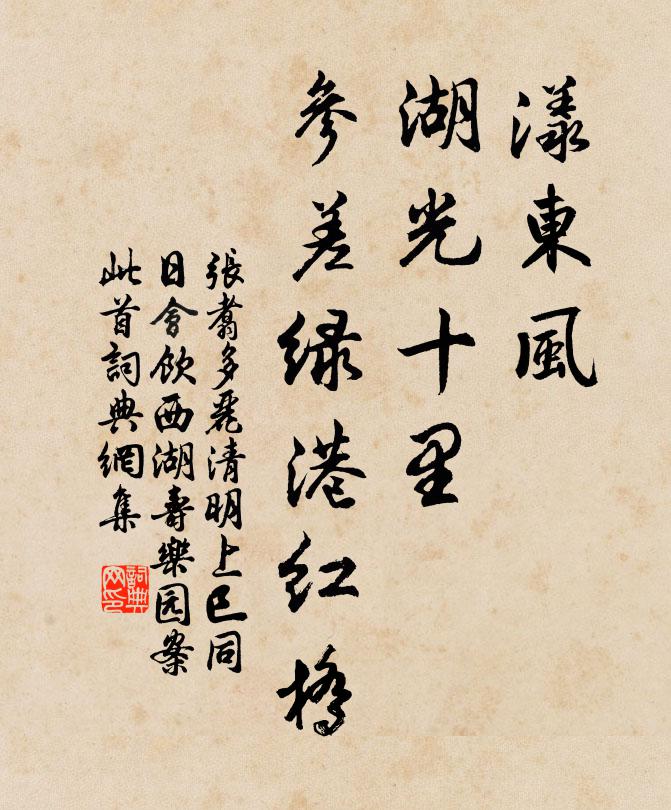 漾東風
湖光十里
參差綠港紅橋
張翥多麗清明上巳同
日會飲西湖壽樂园案
此首詞典網集
詞典网印